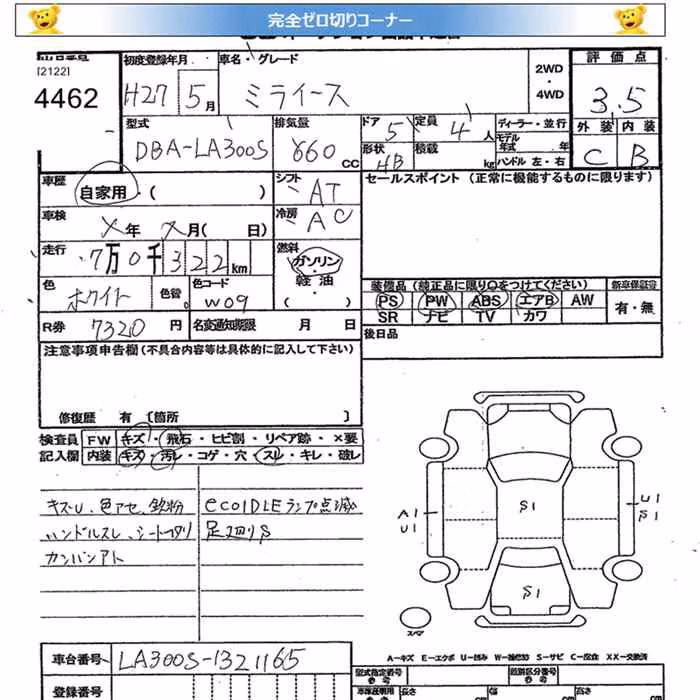 完全ゼロ切りコーナー
[2122]
4462
初度登録年月
H27 5月
車名・グレード
ミライース
2WD
・
4WD
評価点
3.5
外装 内装
C B
型式
DBA-LA300S
排気量
660 CC
ドア 5
形状 HB
定員 4 人
積載 kg
ディーラー・並行
モデル年式 年
ハンドル 左・右
車歴
自家用・( )
シフト AT
セールスポイント (正常に機能するものに限ります)
車検
X年 X月( 日)
冷房 AC
走行
7万0千322km
燃料
ガソリン・
軽油・
( )
色
ホワイト
色替
色コード
W09
装備品 (純正品に限り○をつけてください)
新車保証書
PS PW ABS エアB AW
SR ナビ TV カワ
有・無
R券 7320 円
名変通知期限 月 日
後日品
注意事項申告欄 (不具合内容等は具体的に記入して下さい)
修復歴 有 〔箇所 〕
検査員 FW キズ・飛石・ヒビ割・リペア跡・×要
記入欄 内装 キズ・汚レ・コゲ・穴・スレ・キレ・破レ
キズU、色アセ、鉄粉
ハンドルスレ、シートヘタリ
カンバンアト
ecoIDLEランプ点滅
足廻りS
A1
U1
S1
U1
S1
S1
スペア
A-キズ E-エクボ U-凹み W-補修跡 S-サビ C-腐食 XX-交換済
車台番号 LA300S-1321165
登録番号
型式指定番号
参考
類別区分番号
参考
車庫証明用
参考
長さ
幅
高さ